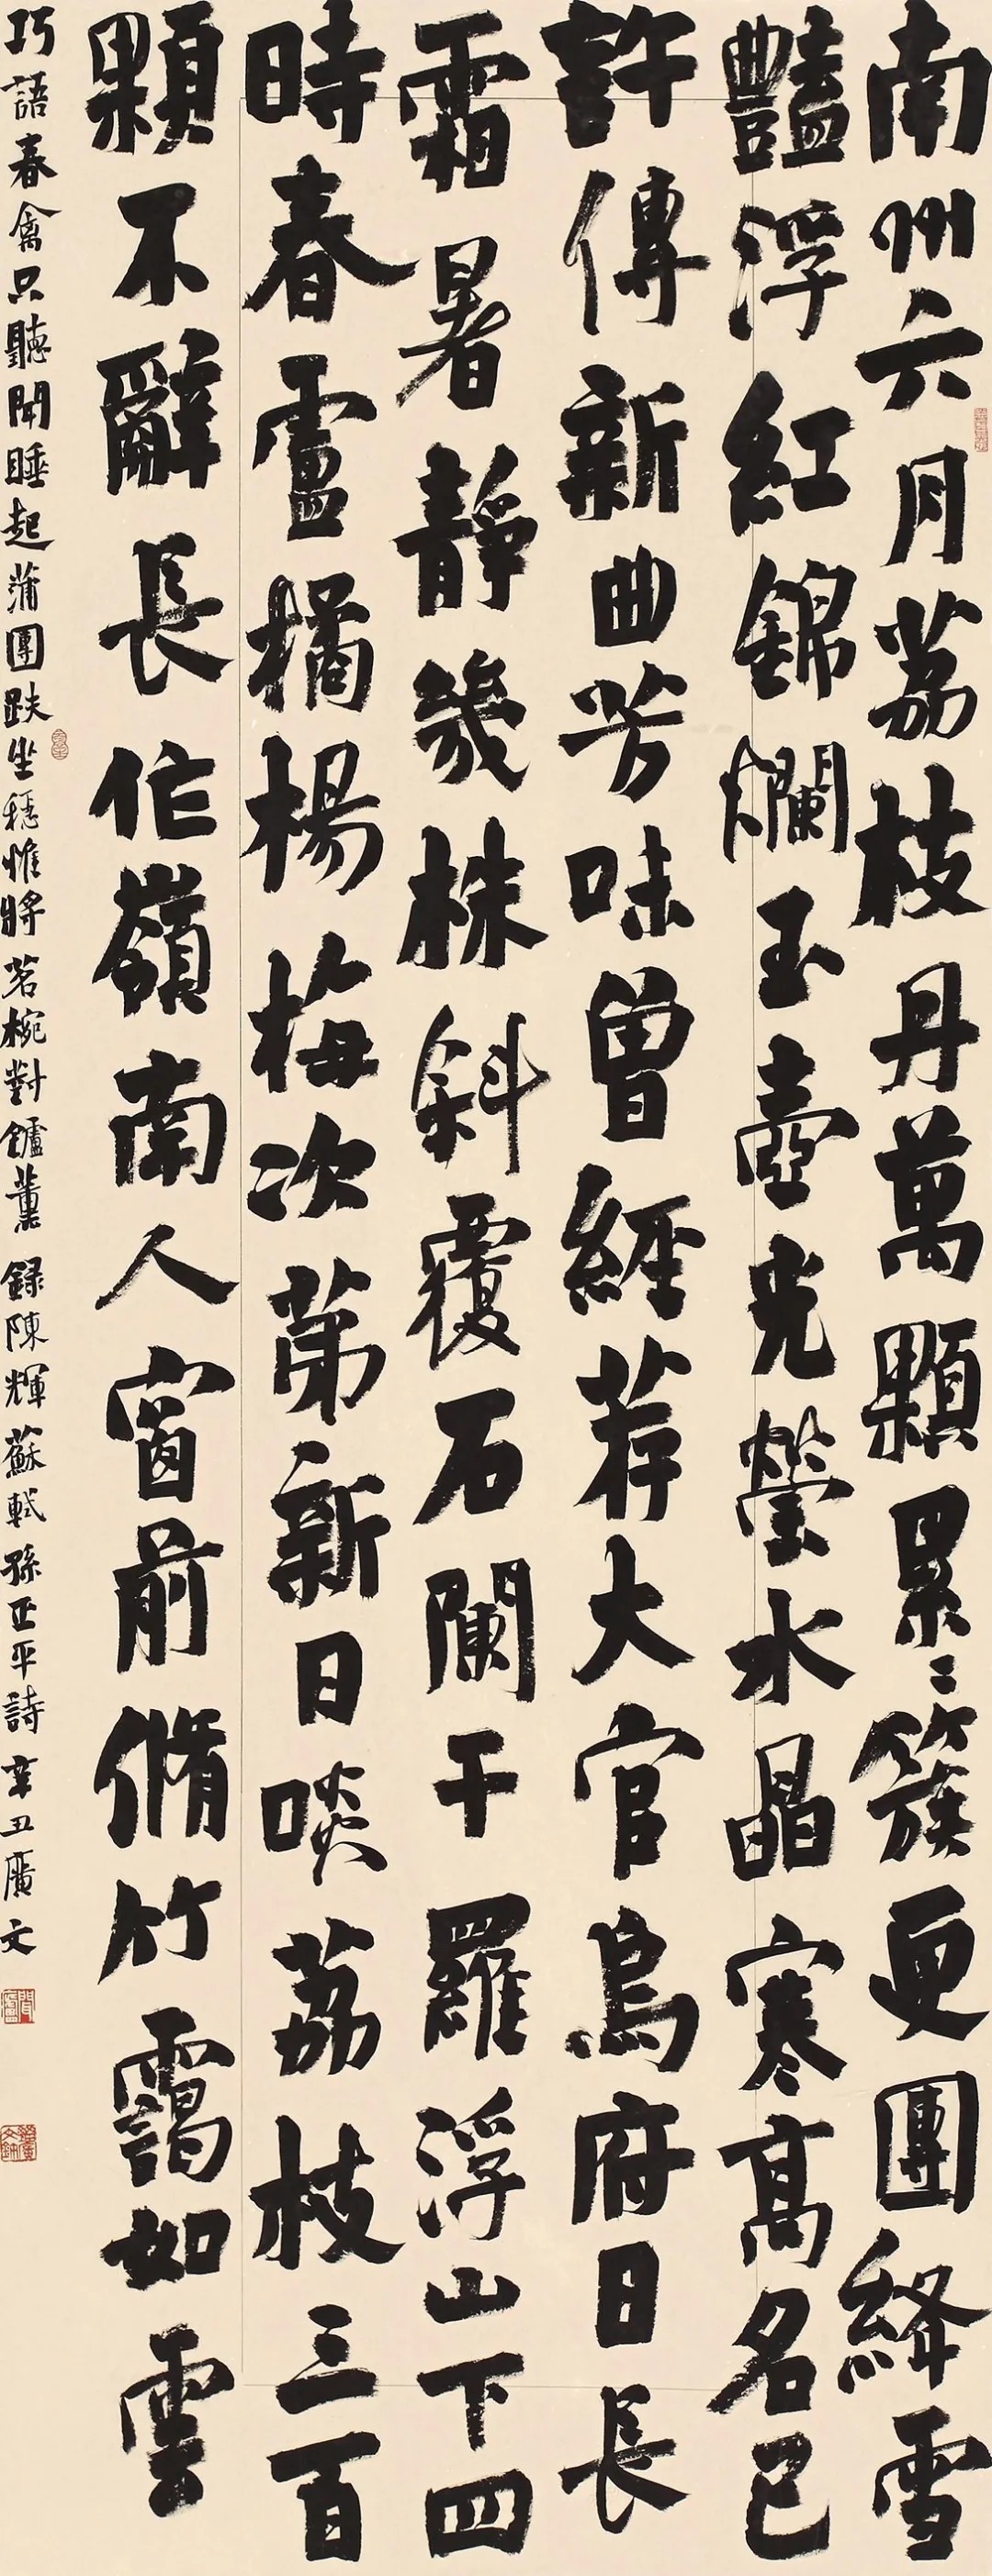 南州六月荔枝丹萬顆累々簇更團絳雪
豔浮紅錦爛玉壺光瑩水晶寒高名已
許傳新曲芳味曾經荐大官烏府日長
霜暑靜幾株斜覆石闌干羅浮山下四
時春盧橘楊梅次第新日啖荔枝三百
顆不辭長作嶺南人窗前脩竹靄如雲
巧語春禽只聽聞睡起蒲團趺坐穩惟將茗椀對鑪薰錄陳輝蘇軾孫正平詩辛丑廣文